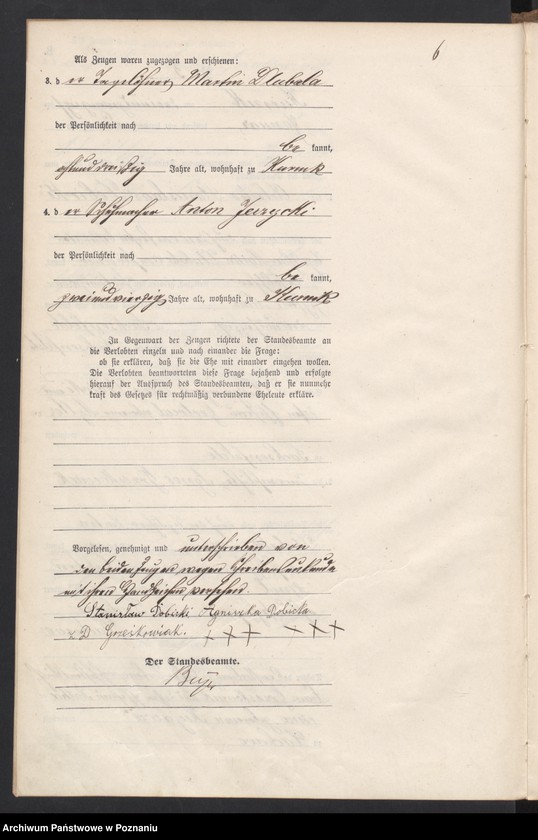 6
Als Zeugen waren zugezogen und erschienen:
3. der Tagelöhner Martin Dlubala
der Persönlichkeit nach
be kannt,
achtunddreißig Jahre alt, wohnhaft zu Kurnik
4. der Schuhmacher Anton Jezycki
der Persönlichkeit nach
be kannt,
zweiundvierzig Jahre alt, wohnhaft zu Kurnik
In Gegenwart der Zeugen richtete der Standesbeamte an
die Verlobten einzeln und nach einander die Frage:
ob sie erklären, daß sie die Ehe mit einander eingehen wollen.
Die Verlobten beantworteten diese Frage bejahend und erfolgte
hierauf der Ausspruch des Standesbeamten, daß er sie nunmehr
kraft des Gesetzes für rechtmäßig verbundene Eheleute erkläre.
Vorgelesen, genehmigt und unterschrieben von
den beiden Zeugen wegen Schreibensunkunde
mit ihren Handzeichen versehen
Stanisław Dobicki Agniszka Dobicka
z D Grzeskowiak. +++ +++
Der Standesbeamte.
Archiwum Państwowe w Poznaniu